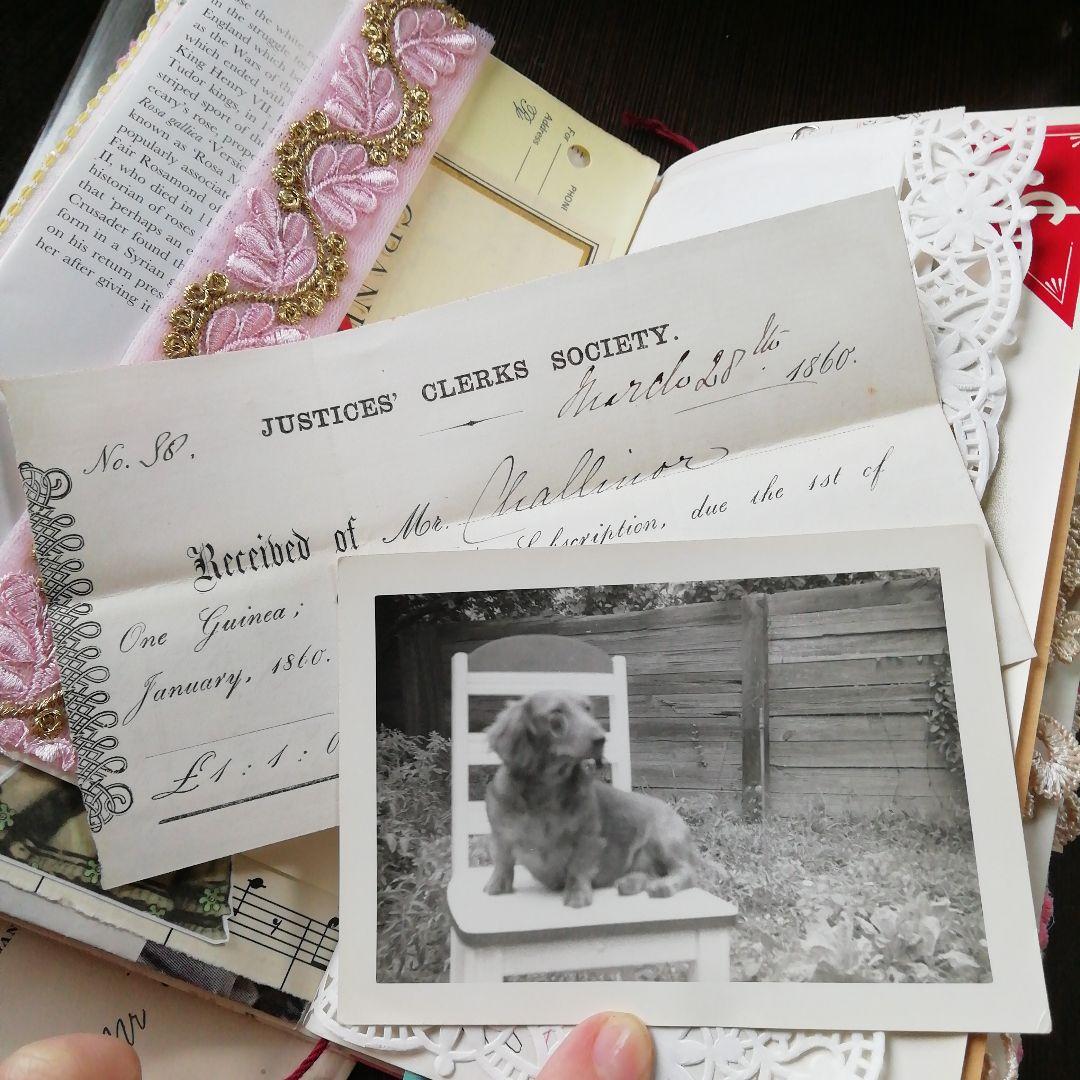 ose the white
in the struggle
England which
as the Wars of the
which ended with
King Henry VII
Tudor kings, in
striped sport of the
ecary's rose,
Rosa gallica 'Versic
known as 'Rosa M
popularly associate
Fair Rosamond of
II, who died in 11
historian of roses
that 'perhaps an e
Crusader found th
form in a Syrian
on his return pres
her after giving it
For
Address
PHONE
GRAN
JUSTICES' CLERKS SOCIETY.
March 28th 1860.
No. 38.
Received of Mr. Challinor
One Guinea; Subscription, due the 1st of
January, 1860.
£1 : 1 : 0